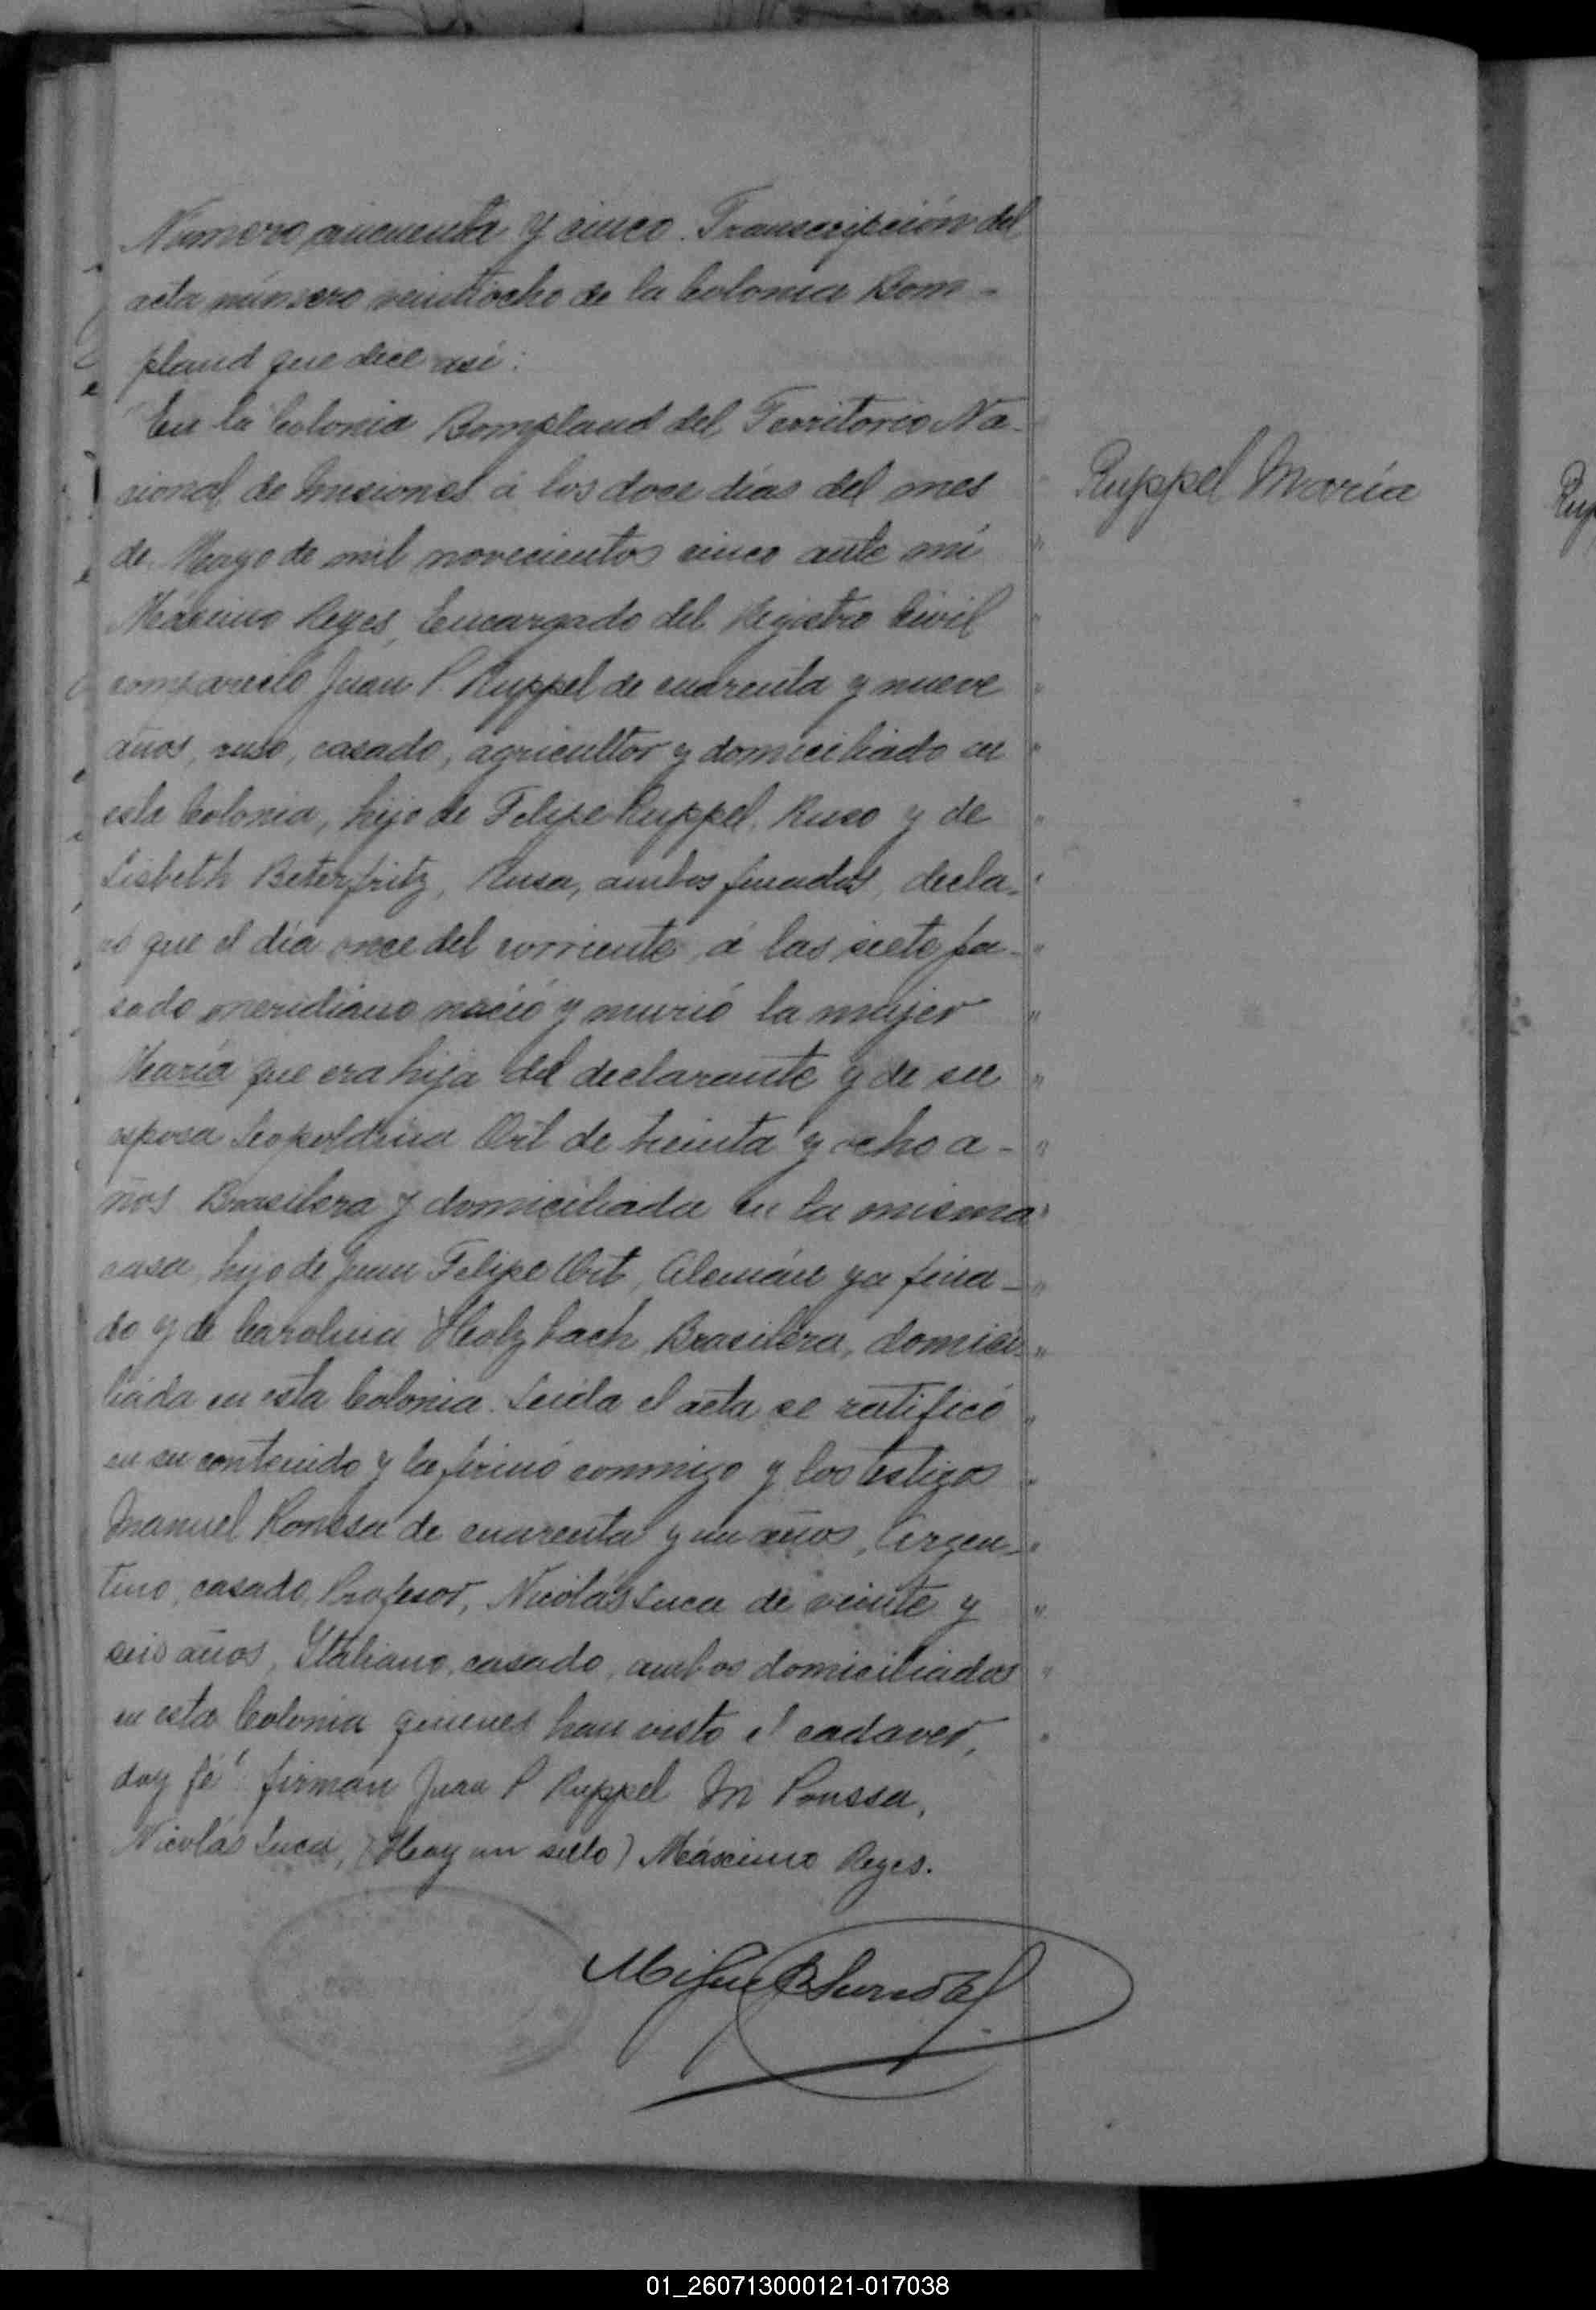 Número cincuenta y cinco. Transcripción del
acta número veintiocho de la Colonia Bom-
pland que dice así:
En la Colonia Bompland del Territorio Na-
cional de Misiones á los doce días del mes
de Mayo de mil novecientos cinco ante mí
Máximo Reyes, Encargado del Registro Civil
compareció Juan P. Ruppel de cuarenta y nueve
años, ruso, casado, agricultor y domiciliado en
esta Colonia, hijo de Felipe Ruppel, Ruso y de
Lisbeth Beterfritz, Rusa, ambos finados, decla-
ró que el día once del corriente á las siete pa-
sado meridiano nació y murió la mujer
María que era hija del declarante y de su
esposa Leopoldina Ort de treinta y ocho a-
ños Brasilera y domiciliada en la misma
casa, hijo de Juan Felipe Ort, Alemán ya fina-
do y de Carolina Holzbach, Brasilera, domici-
liada en esta Colonia. Leída el acta se ratificó
en su contenido y la firmó conmigo y los testigos
Manuel Ponssa de cuarenta y un años, Argen-
tino, casado, Profesor, Nicolás Luca de veinte y
seis años, Italiano, casado, ambos domiciliados
en esta Colonia quienes han visto el cadaver,
doy fé: firman Juan P Ruppel M Ponssa,
Nicolás Luca, (Hay un sello) Máximo Reyes.
Ruppel María
01_260713000121-017038